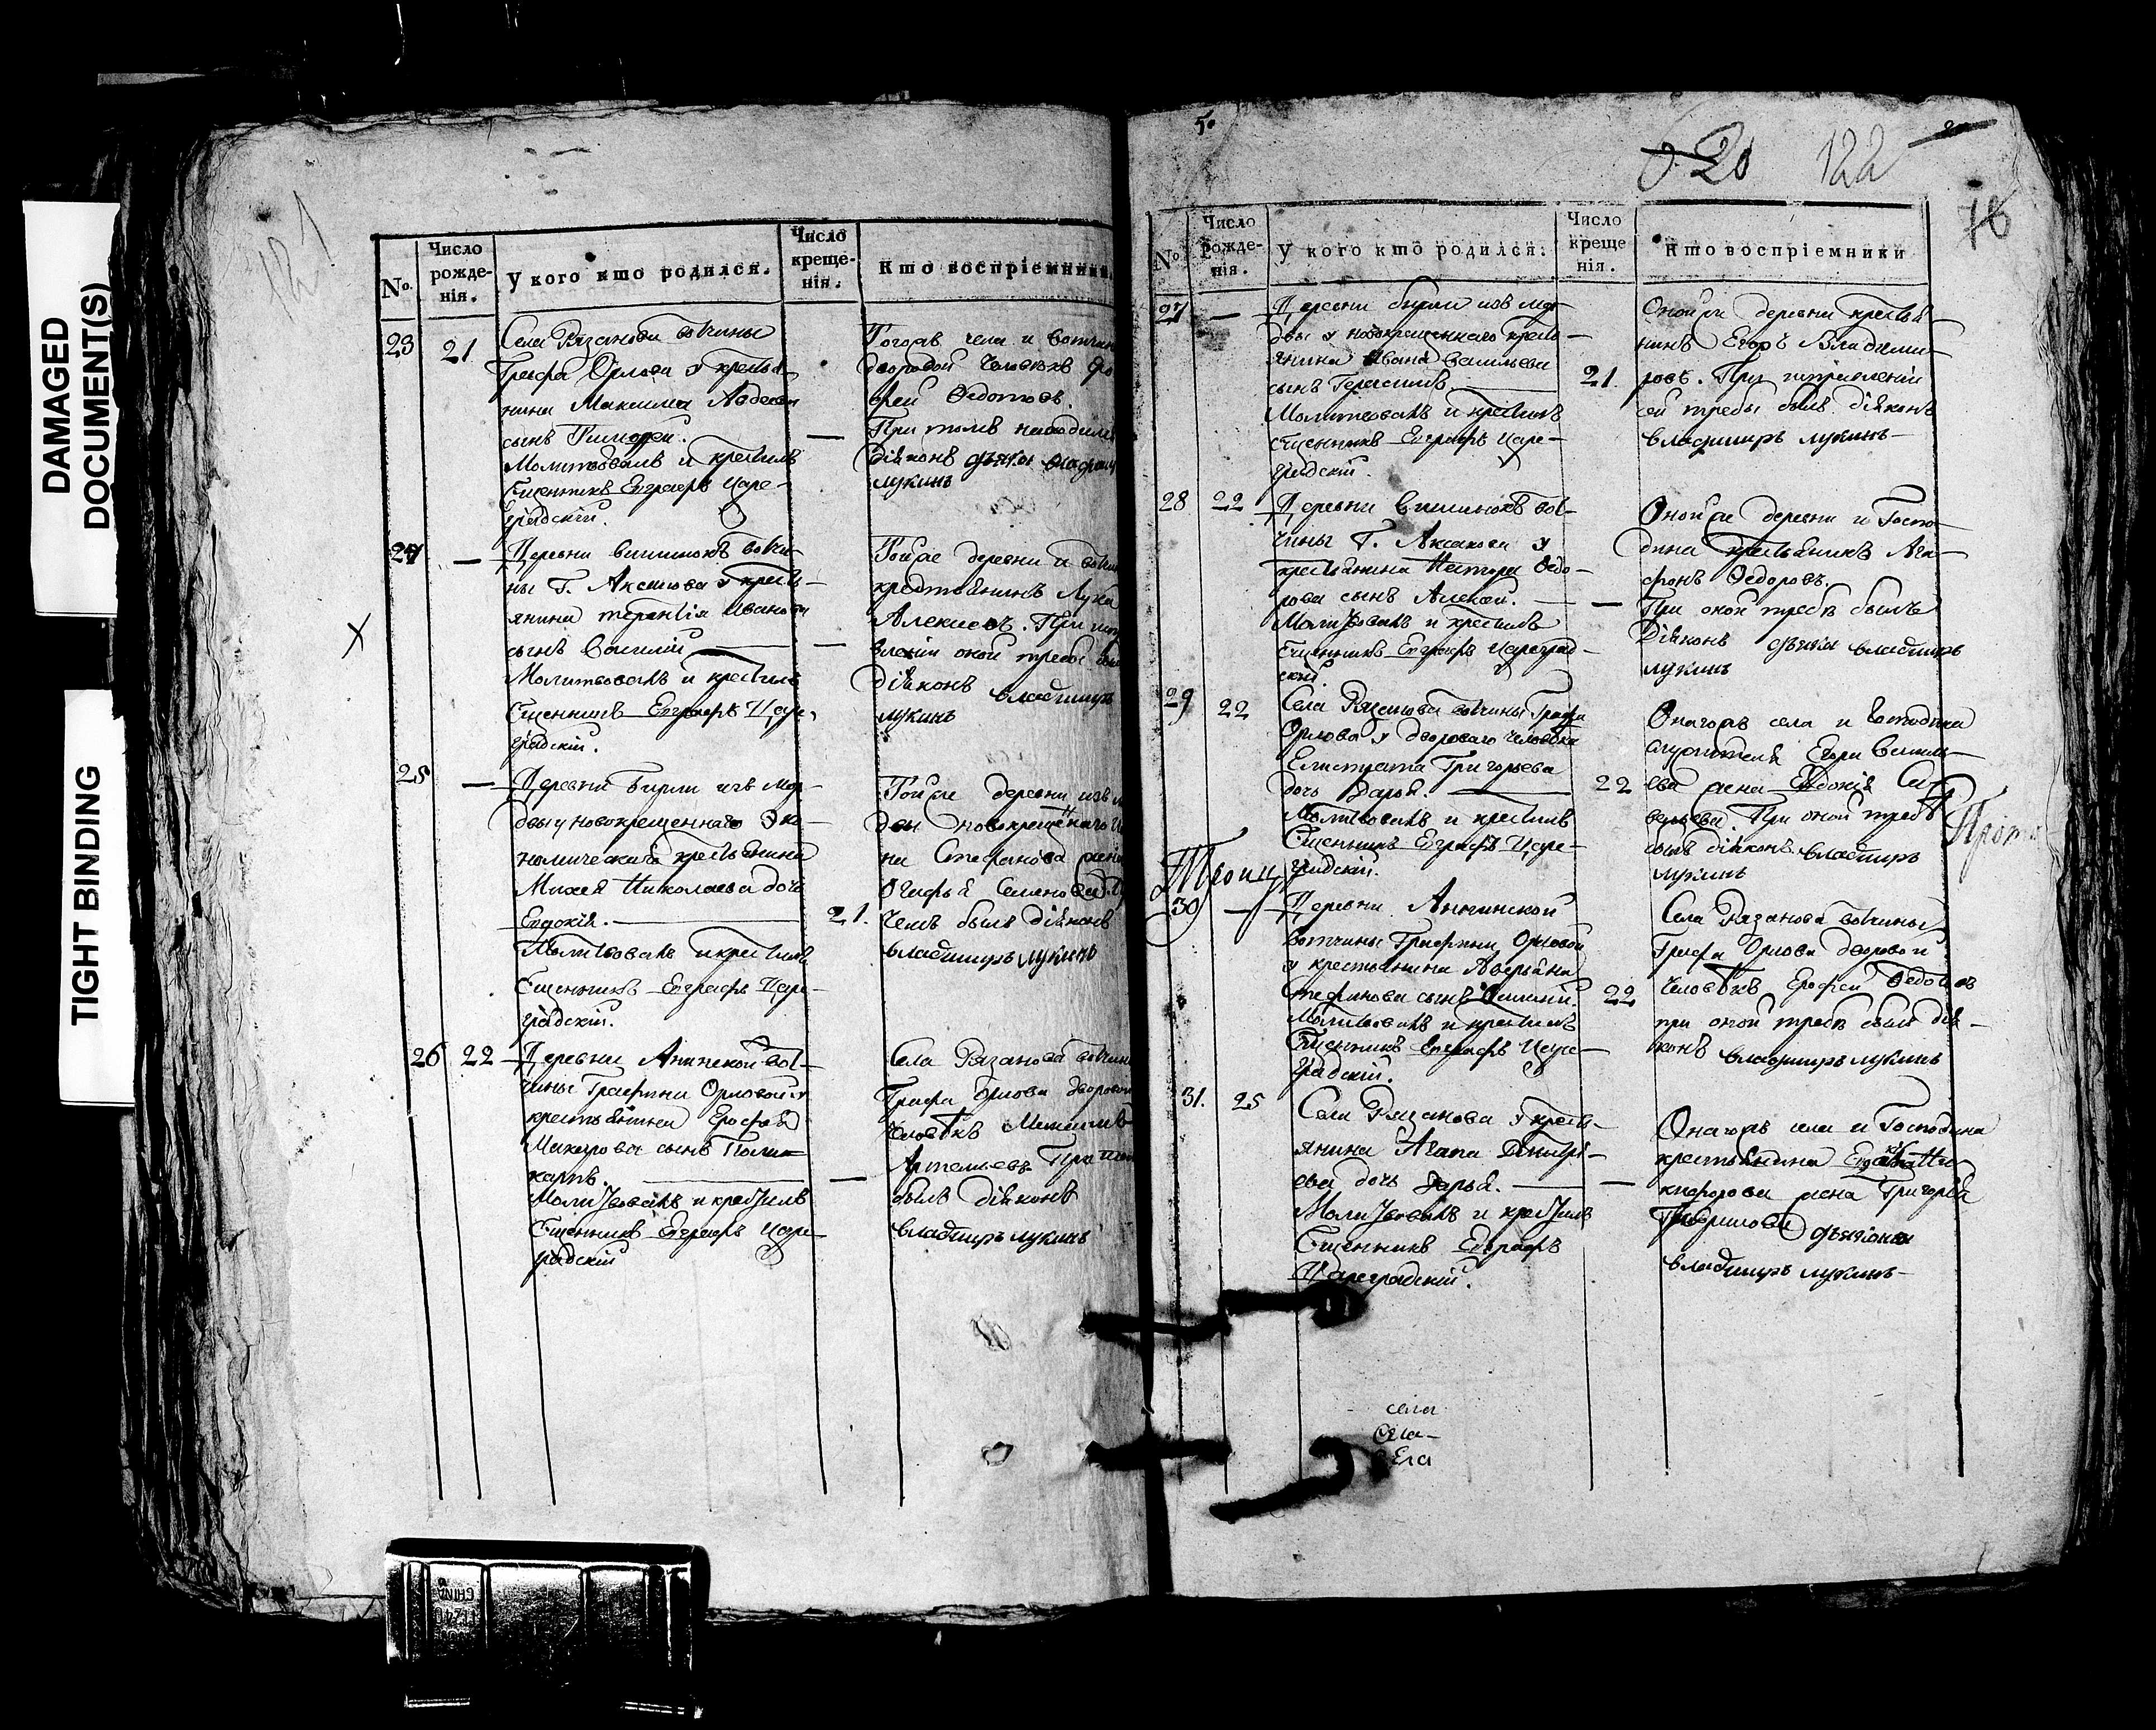 DAMAGED
DOCUMENT(S)
TIGHT BINDING
121
№.
Число
рожде-
нія.
У кого кто родился.
Число
креще-
нія.
Кто воспріемники.
23
21.
Села Рязанова вотчины
Графа Орлова у кресья-
нина Максима Авдеева
сынъ Тимофеи.
Молитвовалъ и крестилъ
Сщенникъ Евграфъ Царе-
градскій.
—
Тогожъ села и вотчин
дворовой человѣкъ
Федотовъ.
При томъ находился
діяконъ
лукинъ
24
—
Деревни вишинокъ вотчи-
ны Г. Аксакова у кресть-
янина терентія Иванова
сынъ Василій —
Молитвовалъ и крестилъ
Сщенникъ Евграфъ Царе-
градскій.
—
Тойже деревни и вотчин
крестьянинъ Лука
Алексеевъ. При
оной требы
діяконъ владимиръ
лукинъ
25
—
Деревни Бирли изъ мор-
двы у новокрещеннаго эко-
номическаго крестьянина
Михея Николаева дочь
Евдокія. —
Молитвовалъ и крестилъ
Сщенникъ Евграфъ Царе-
градскій.
21.
Тойже деревни изъ м
двы новокрещеннаго
на Стефанова жена
Огафья Семенова.
чемъ былъ діяконъ
владимиръ лукинъ
26
22
Деревни Анинской вот-
чины Графини Орловой у
крестьянина Ерофея
Макарова сынъ Поли-
карпъ. —
Молитвовалъ и крестилъ
Сщенникъ Евграфъ Царе-
градскій
—
Села Рязанова вотчины
Графа Орлова дворовой
человѣкъ
Артемьевъ. При
былъ діяконъ
владимиръ лукинъ
5.
20
122
76
№.
Число
рожде-
нія.
У кого кто родился.
Число
креще
нія.
Кто воспріемники
27
—
Деревни бирли изъ мор-
двы у новокрещеннаго кресть-
янина Ивана Васильева
сынъ Герасимъ —
Молитвовалъ и крестилъ
Сщенникъ Евграфъ Царе-
градскій.
21.
Онойже деревни крестья-
нинъ Егоръ Владими-
ровъ. При исправленіи
сей требы былъ діяконъ
владимиръ лукинъ
28
22
Деревни вишинокъ вот-
чины Г. Аксакова у
крестьянина Нестора Федо-
рова сынъ Алексей. —
Молитвовалъ и крестилъ
Сщенникъ Евграфъ Цареград-
скій
—
Онойже деревни и Госпо-
дина крестьянинъ Ага-
фонъ Федоровъ.
При оной требѣ былъ
діяконъ владимиръ
лукинъ
29
22
Села Рязанова вотчины Графа
Орлова у двороваго человѣка
Елистрата Григорьева
дочь Дарья. —
Молитвовалъ и крестилъ
Сщенникъ Евграфъ Царе-
градскій.
22
Оногожъ села и Господина
служителя Егора Василь-
ева жена Евдокія Са-
вельева. При оной требѣ
былъ діяконъ владимиръ
лукинъ
Троиц
30
—
Деревни Аннинской
вотчины Графини Орловой
у крестьянина Аверьяна
Стефанова сынъ
Молитвовалъ и крестилъ
Сщенникъ Евграфъ Царе-
градскій.
22
Села Рязанова вотчины
Графа Орлова дворовой
человѣкъ Ерофеи Федотовъ
при оной требѣ былъ дія-
конъ владимиръ лукинъ
31.
25
Села Рязанова у кресть-
янина Агапа Дмитрі-
ева дочь Дарья. —
Молитвовалъ и крестилъ
Сщенникъ Евграфъ
Цареградскій.
—
Оногожъ села и Господина
крестьянина Ни-
кифорова жена
владимиръ лукинъ
села
Села
Ела